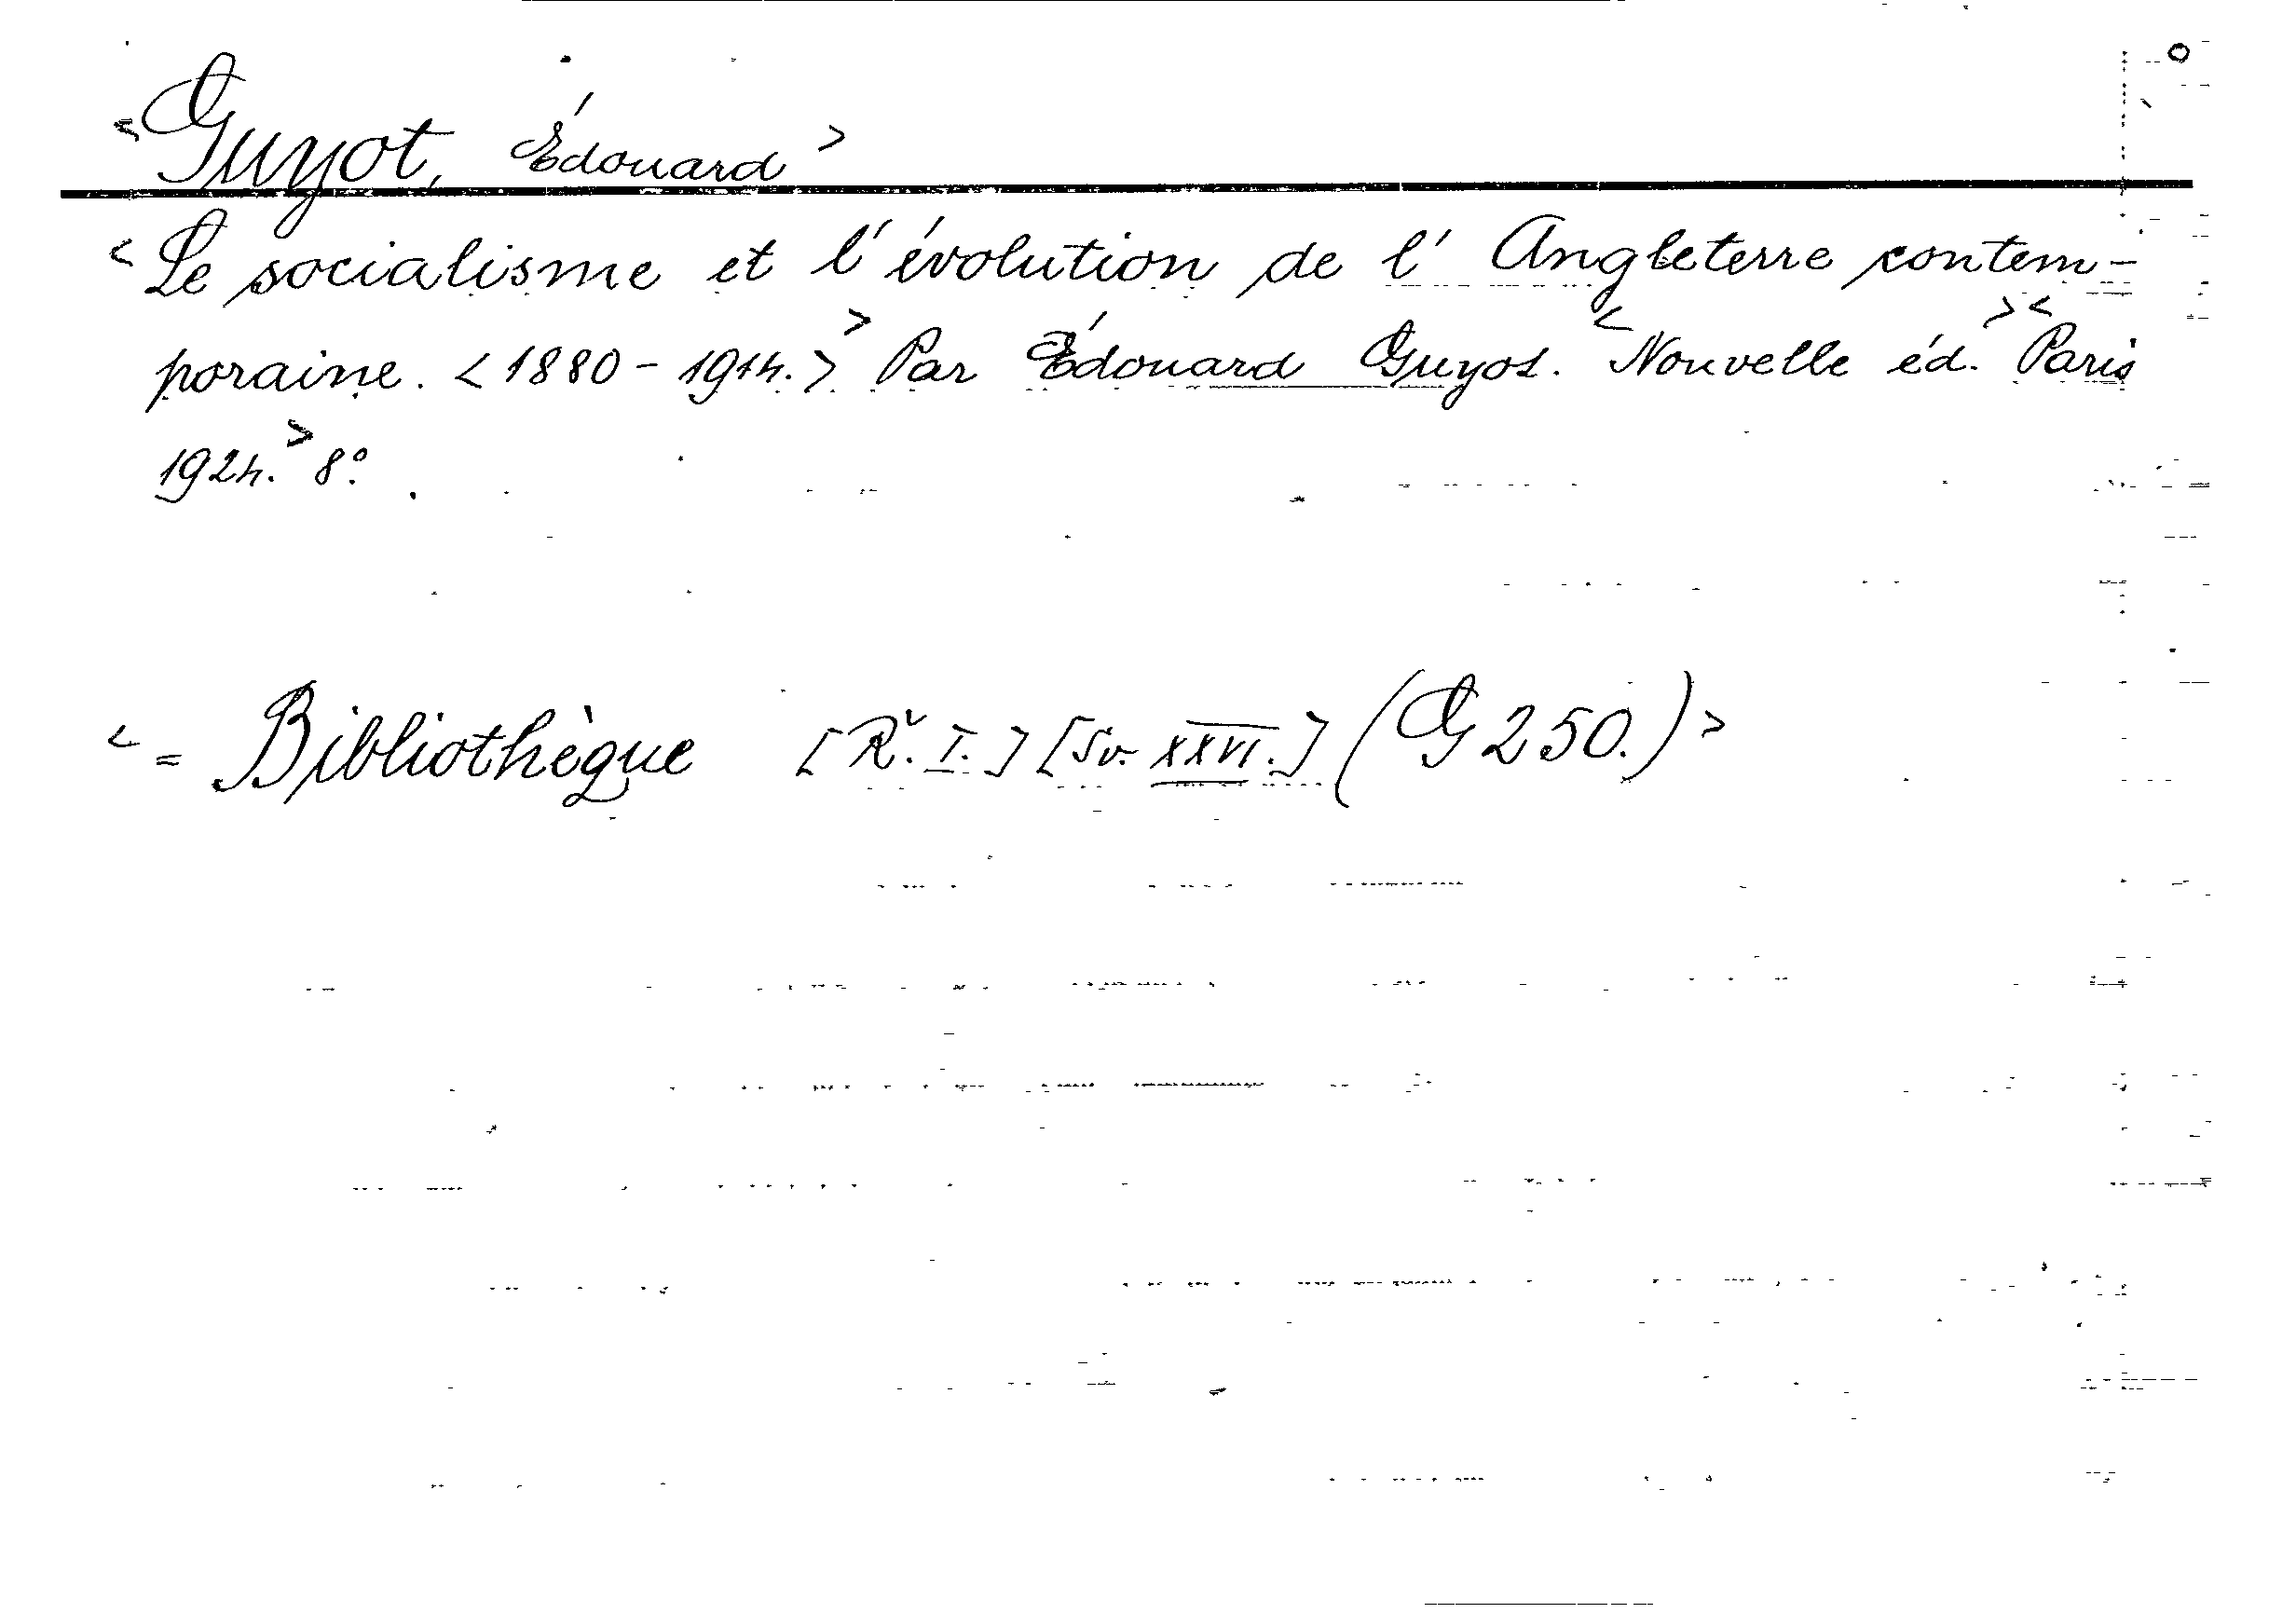 <Guyot, Édouard>
<Le socialisme et l'évolution de l'Angleterre contem-
poraine. <1880-1914.>> Par Édouard Guyot. <Nouvelle éd.> <Paris
1924.> 8°.
<= Bibliothèque [Ř. I.] [Sv. XXVI.] (G 250.)>